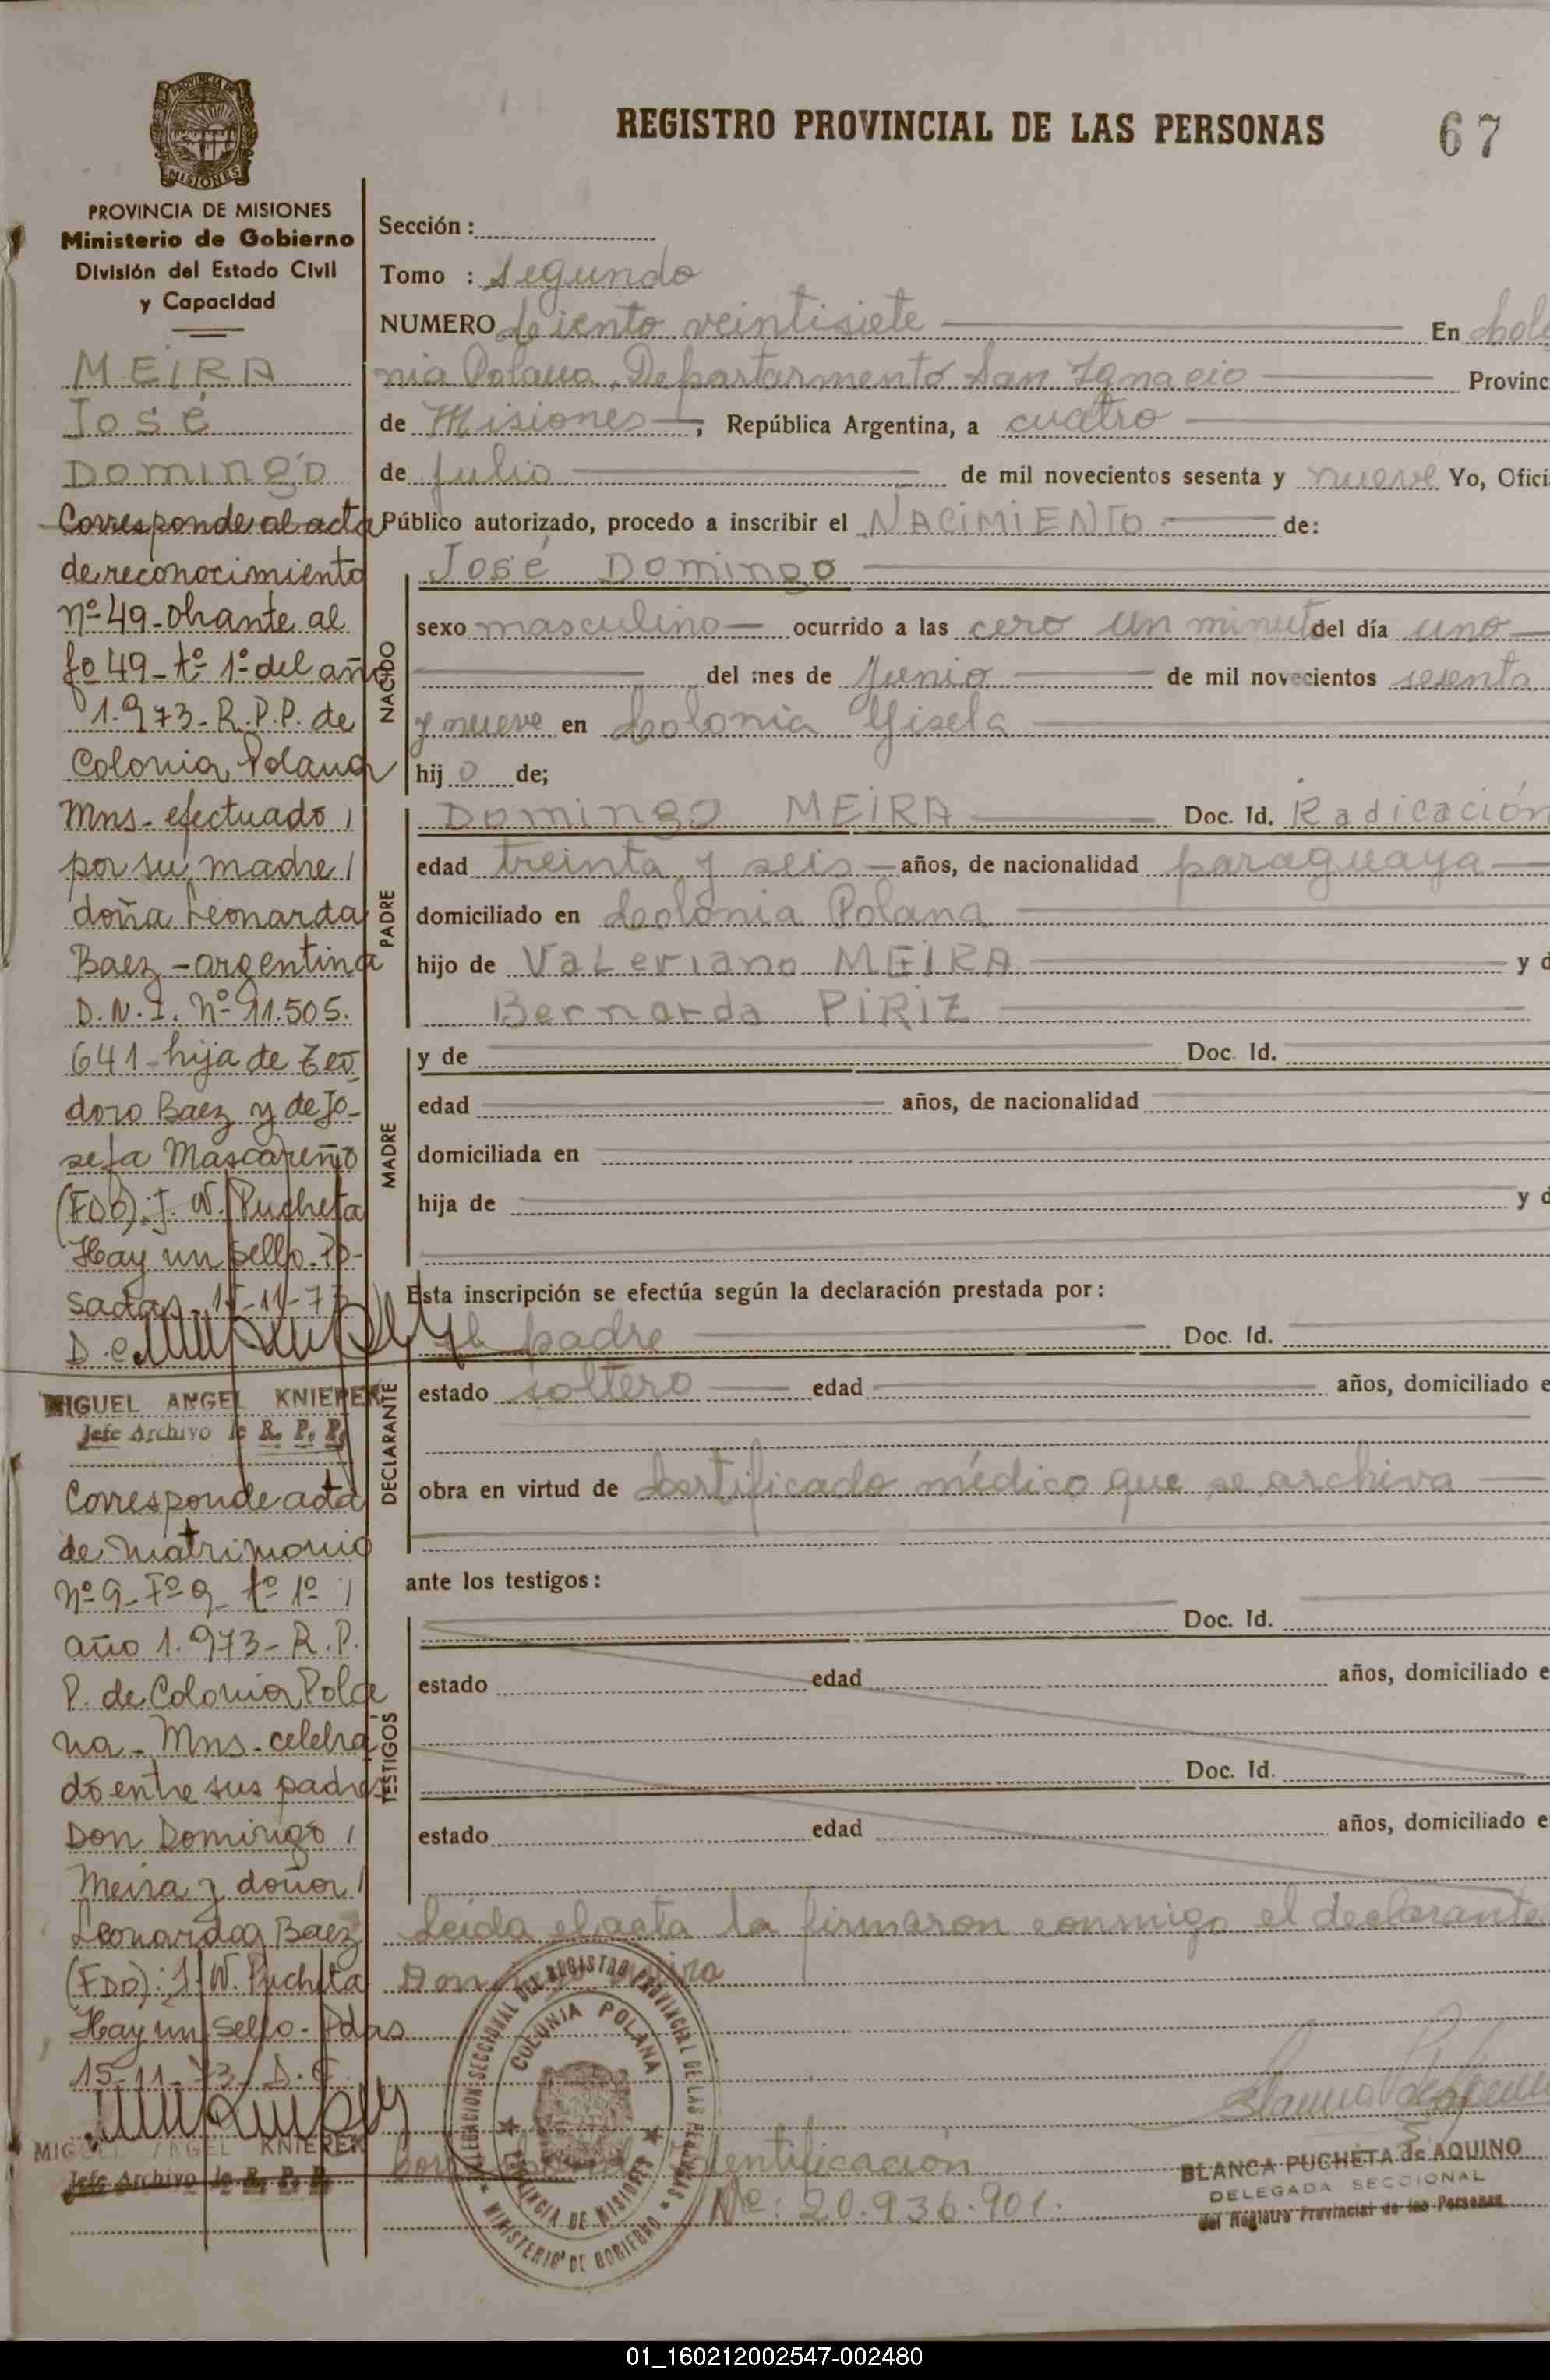 REGISTRO PROVINCIAL DE LAS PERSONAS
67
PROVINCIA DE MISIONES
MISIONES
PROVINCIA DE MISIONES
Ministerio de Gobierno
División del Estado Civil
y Capacidad
MEIRA
José
Domingo
Corresponde al acta
de reconocimiento
nº 49 - obrante al
fo 49 - tº 1º del año
1.973 - R.P.P. de
Colonia Polana
Mns - efectuado /
por su madre /
doña Leonarda
Baez - argentina
D.N.I. Nº 11.505.
641 - hija de Teo
doro Baez y de Jo-
sefa Mascareño
(FDO): J. W. Pucheta
Hay un sello. Po-
sadas - 15-11-73
D.C.
MIGUEL ANGEL KNIEREK
Jefe Archivo R. P. P.
Corresponde acta
de matrimonio
nº 9 - Fº 9 - tº 1º /
año 1.973 - R.P.
P. de Colonia Pola
na - Mns - celebra
do entre sus padres
Don Domingo /
Meira y doña /
Leonarda Baez
(FDO): J. W. Pucheta
Hay un sello - Pdas
15-11-73 - D.C.
MIGUEL ANGEL KNIEREK
Jefe Archivo R. P. P.
Sección :
Tomo : Segundo
NUMERO Ciento veintisiete En Colo
nia Polana, Departarmento San Ignacio Provinc
de Misiones, República Argentina, a cuatro
de julio de mil novecientos sesenta y nueve Yo, Ofici
Público autorizado, procedo a inscribir el NACIMIENTO de:
NACIDO
José Domingo
sexo masculino ocurrido a las cero un minut del día uno
del mes de Junio de mil novecientos sesenta
y nueve en Colonia Gisela
hij o de;
PADRE
Domingo MEIRA Doc. Id. Radicación
edad treinta y seis años, de nacionalidad paraguaya
domiciliado en Colonia Polana
hijo de Valeriano MEIRA y d
Bernarda PIRIZ
MADRE
y de Doc. Id.
edad años, de nacionalidad
domiciliada en
hija de y d
Esta inscripción se efectúa según la declaración prestada por :
DECLARANTE
El padre Doc. Id.
estado soltero edad años, domiciliado e
obra en virtud de Certificado médico que se archiva
ante los testigos :
TESTIGOS
Doc. Id.
estado edad años, domiciliado e
Doc. Id.
estado edad años, domiciliado e
Leída el acta la firmaron conmigo el declarante
DELEGACION SECCIONAL DEL REGISTRO PROVINCIAL DE LAS PERSONAS
COLONIA POLANA
PROVINCIA DE MISIONES
MINISTERIO DE GOBIERNO
Nº: 20.936.901.
BLANCA PUCHETA de AQUINO
DELEGADA SECCIONAL
del Registro Provincial de las Personas
01_160212002547-002480